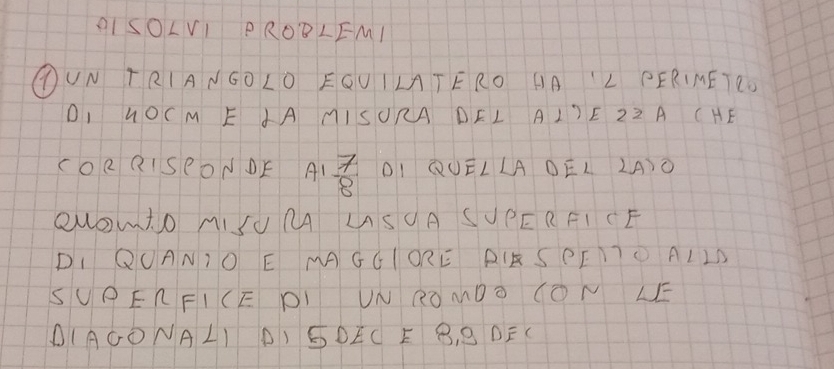 RISOLVI PROBLEMI
① UN TRIANGOLO EQUILATERO HA IL PERIMETRO
DI 40CM E LA MISURA DEL ALTEZZA CHE
CORRISPONDE AI 7/8 DI QUELLA DEL LATO
QUANTO MISURA LA SUA SUPERFICE
DI QUANTO E MAGGIORE RISPETTO ALLA
SUPERFICE DI UN ROMBO CON LE
DIAGONALI DI 5 DEC E 8,9 DEC